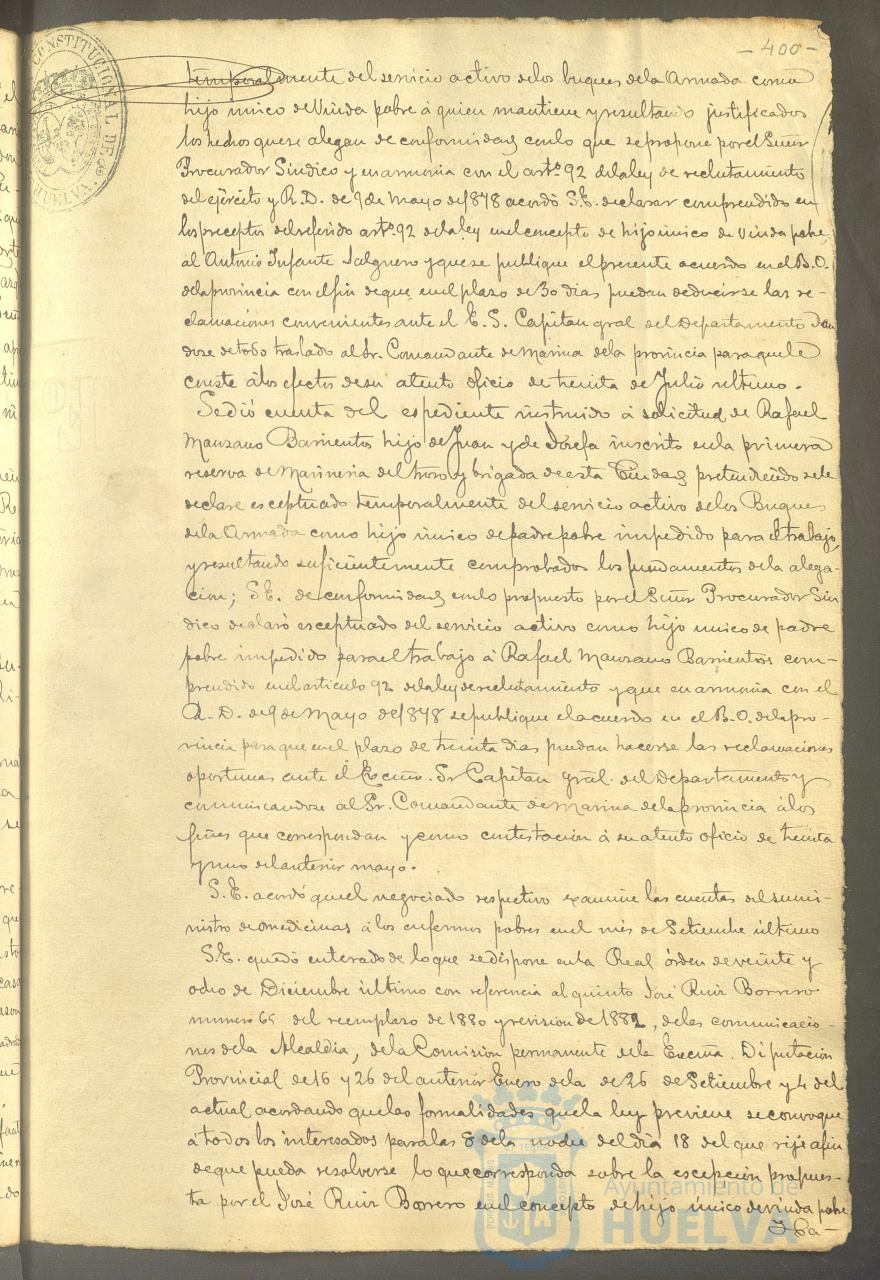 - 400 -
CONSTITUCIONAL DE
HUELVA
temporalmente del servicio activo delos buques dela Armada como
hijo único de Viuda pobre á quien mantiene y resultando justificados
los hechos que se alegan de conformidad con lo que se propone por el Señor
Procurador Síndico y en armonia con el artº 92 dela ley de reclutamiento
del ejército y R.D. de 9 de Mayo de 1878 acordó S.E. declarar comprendido en
los preceptos del referido artº 92 dela ley en el concepto de hijo único de Viuda pobre,
al Antonio Infante Salguero y que se publique el presente acuerdo en el B.O.
dela provincia con el fin de que en el plazo de 30 dias puedan deducirse las re-
clamaciones convenientes ante el E.S. Capitan gral del Departamento dan
dose de todo traslado al Sr. Comandante de Marina dela provincia para que le
conste á los efectos de su atento oficio de treinta de Julio último.
Se dió cuenta del espediente instruido á solicitud de Rafael
Manzano Barrientos hijo de Juan y de Josefa inscrito en la primera
reserva de Marineria del trozo y brigada de esta Ciudad pretendiendo se le
declare esceptuado temporalmente del servicio activo delos Buques
dela Armada como hijo único de padre pobre impedido para el trabajo,
y resultando suficientemente comprobados los fundamentos dela alega-
cion; S.E. de conformidad con lo propuesto por el Señor Procurador Sin
dico declaró esceptuado del servicio activo como hijo unico de padre
pobre impedido para el trabajo á Rafael Manzano Barrientos com-
prendido en el articulo 92 dela ley de reclutamiento y que en armonia con el
R.D. de 9 de Mayo de 1878 se publique el acuerdo en el B.O. dela pro-
vincia para que en el plazo de treinta dias puedan hacerse las reclamaciones
oportunas ante el Excmo. Sr Capitan gral. del Departamento y
comunicandose al Sr. Comandante de Marina dela provincia á los
fines que correspondan y como contestacion á su atento oficio de treinta
y uno del anterior mayo.
S.E. acordó que el negociado respectivo examine las cuentas del sumi-
nistro de medicinas á los enfermos pobres en el mes de Setiembre último
S.E. quedó enterado de lo que se dispone en la Real órden de veinte y
ocho de Diciembre último con referencia al quinto José Ruiz Borrero
numero 65 del reemplazo de 1880 y revision de 1882, de las comunicacio-
nes dela Alcaldia, dela Comision permanente de la Excma. Diputacion
Provincial de 16 y 26 del anterior Enero dela de 26 de Setiembre y 4 del
actual acordando que las formalidades que la ley previene se convoque
á todos los interesados para las 8 dela noche del dia 18 del que rije a fin
de que pueda resolverse lo que corresponda sobre la escepcion propues-
ta por el José Ruiz Borrero en el concepto de hijo único de viuda pobre
Ayuntamiento de
HUELVA